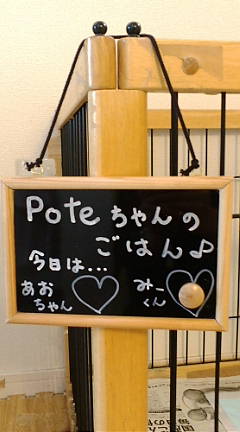 Poteちゃんの
ごはん♪
今日は...
あお
ちゃん
みー
くん